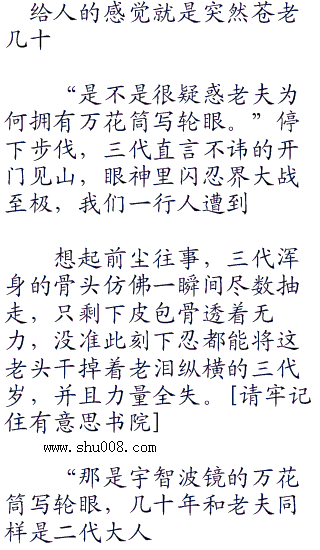 给人的感觉就是突然苍老
几十
“是不是很疑惑老夫为
何拥有万花筒写轮眼。”停
下步伐，三代直言不讳的开
门见山，眼神里闪忍界大战
至极，我们一行人遭到
想起前尘往事，三代浑
身的骨头仿佛一瞬间尽数抽
走，只剩下皮包骨透着无
力，没准此刻下忍都能将这
老头干掉着老泪纵横的三代
岁，并且力量全失。[请牢记
住有意思书院]
www.shu008.com
“那是宇智波镜的万花
筒写轮眼，几十年和老夫同
样是二代大人